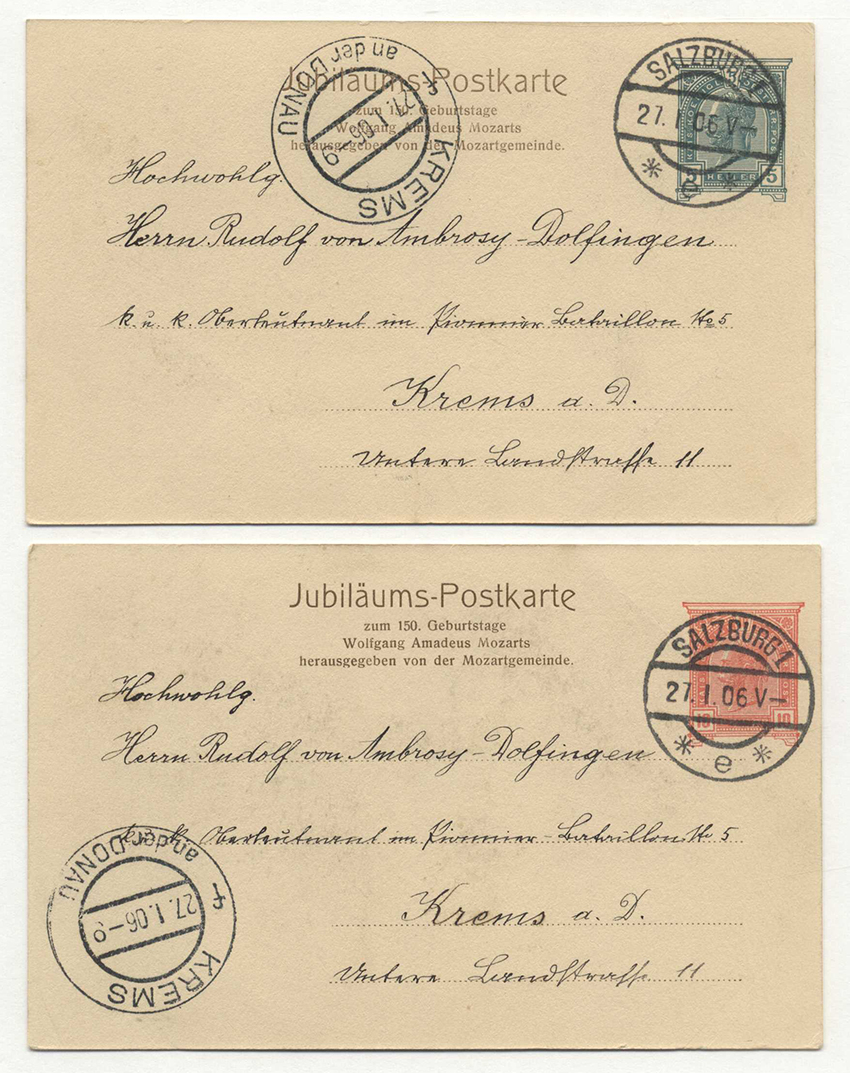 Jubiläums-Postkarte
zum 150. Geburtstage
Wolfgang Amadeus Mozarts
herausgegeben von der Mozartgemeinde.
KREMS
an der DONAU
27. I. 06-9
SALZBURG 1
27. I. 06 V-
* e *
HELLER
5 5
Hochwohlg.
Herrn Rudolf von Ambrosy-Dolfingen
k. u. k. Oberleutnant im Pionnier Bataillon No 5
Krems a. D.
Untere Landstrasse 11
Jubiläums-Postkarte
zum 150. Geburtstage
Wolfgang Amadeus Mozarts
herausgegeben von der Mozartgemeinde.
SALZBURG 1
27. I. 06 V-
* e *
10 10
Hochwohlg.
Herrn Rudolf von Ambrosy-Dolfingen
k. u. k. Oberleutnant im Pionnier-Bataillon No 5
KREMS
an der DONAU
27. 1. 06-9
Krems a. D.
Untere Landstrasse 11